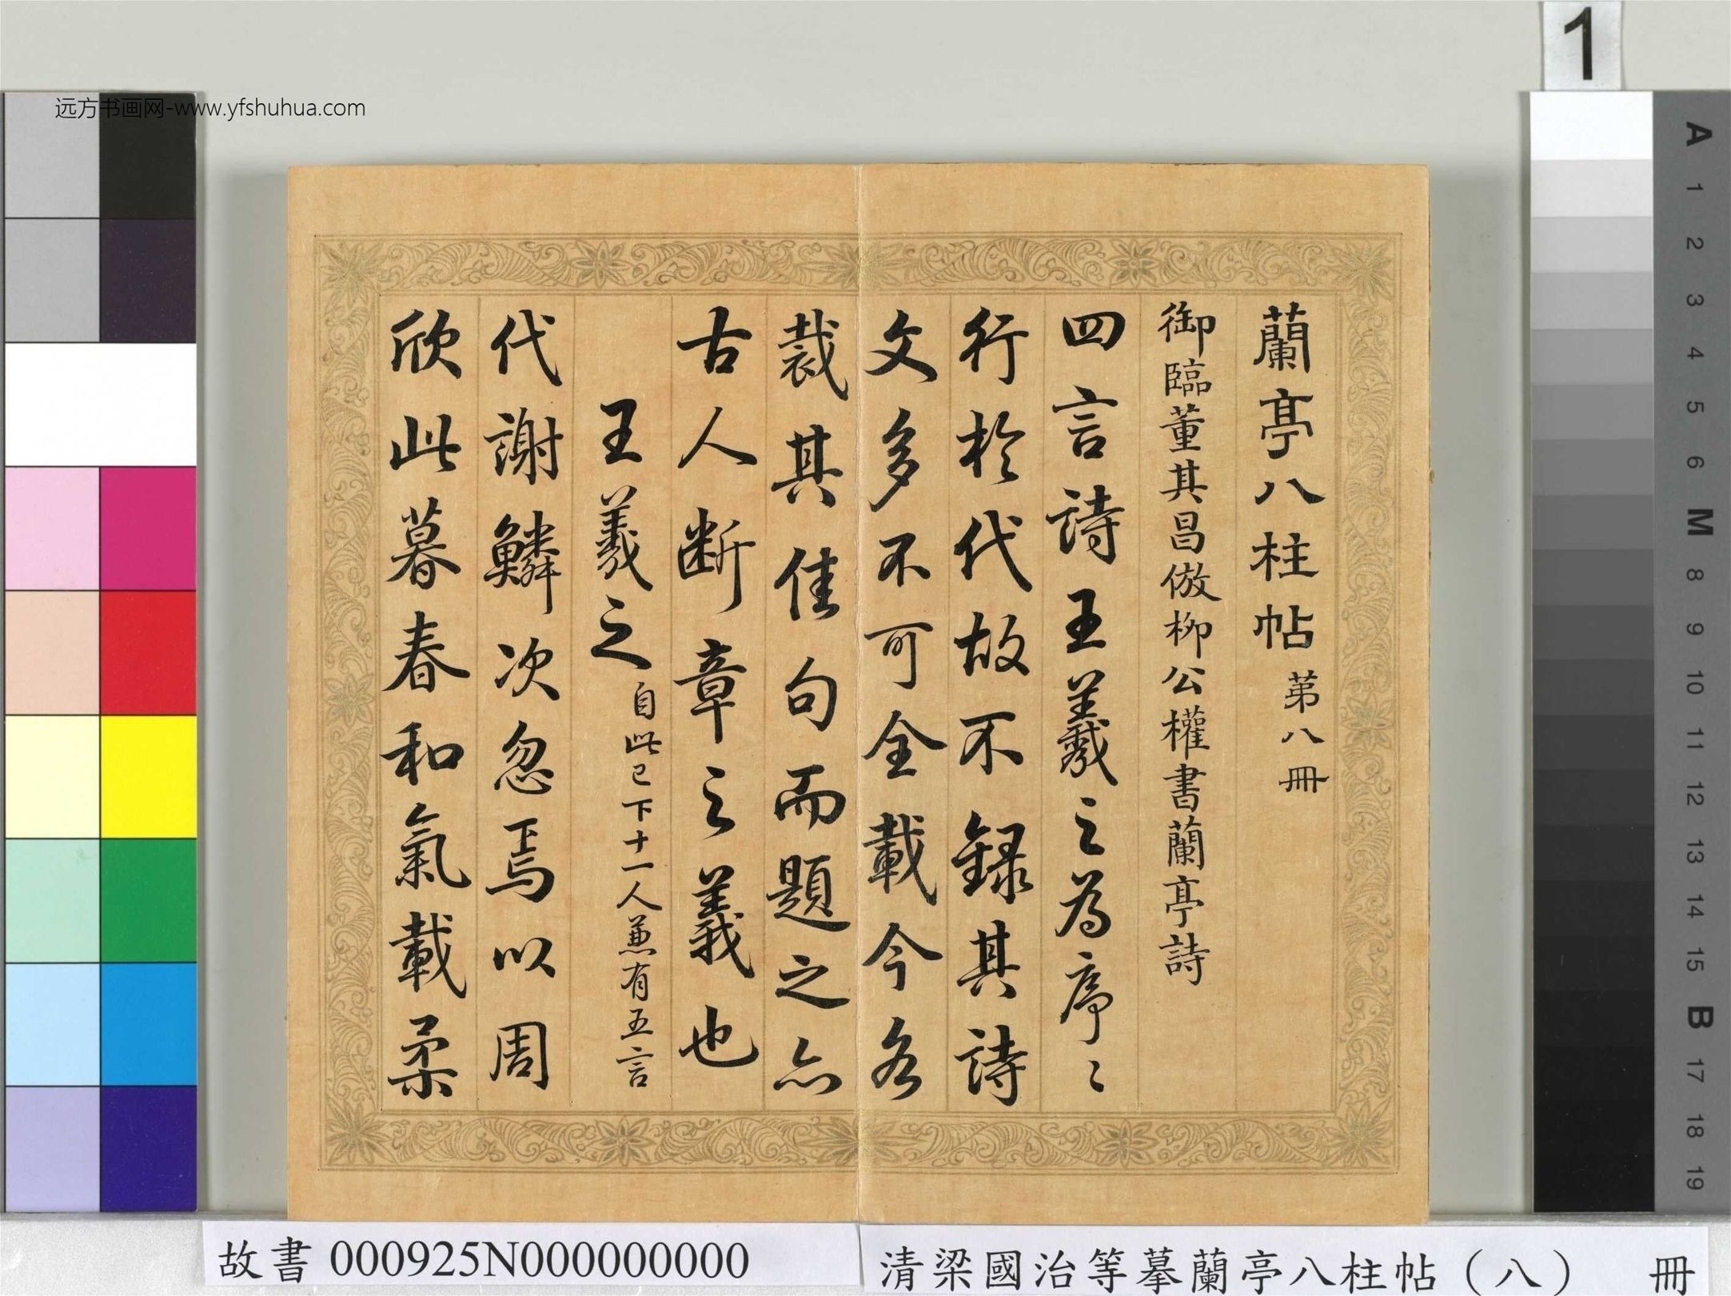 远方书画网-www.yfshuhua.com
1
蘭亭八柱帖 第八冊
御臨董其昌倣柳公權書蘭亭詩
四言詩王羲之為序〻
行於代故不錄其詩
文多不可全載今各
裁其佳句而題之亦
古人斷章之義也
王羲之 自此已下十一人兼有五言
代謝鱗次忽焉以周
欣此暮春和氣載柔
A
1
2
3
4
5
6
M
8
9
10
11
12
13
14
15
B
17
18
19
故書 000925N000000000
清梁國治等摹蘭亭八柱帖（八） 冊